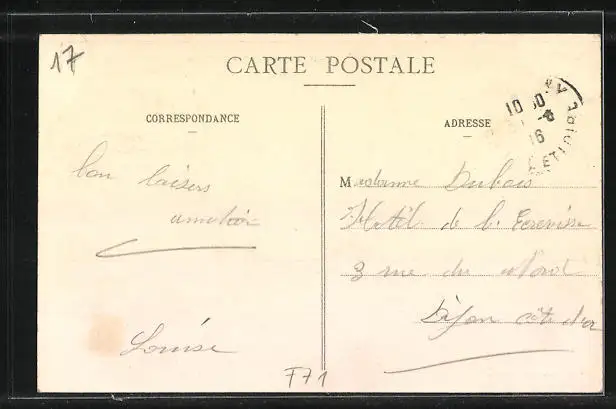 17
CARTE POSTALE
CORRESPONDANCE
bon baisers
Louise
ADRESSE
Madame Dubois
Hotel de l'Ecrevisse
3 rue du Nord
Dijon côte d'or
10 30
16
F71